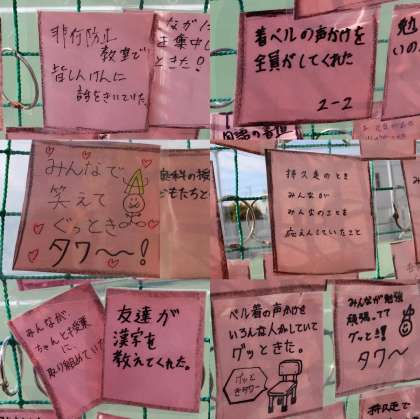 非行防止
教室で
皆しんけんに
話をきいていた。
ときた!
着ベルの声かけを
全員がしてくれた
2-2
勉
いの
みんなで
笑えて
ぐっとき
タワ〜〜!
持久走のとき
みんなが
みんなのことを
応えんしていたこと
みんなが
ちゃんと授業
に
取り組めていた
友達が
漢字を
教えてくれた。
ベル着の声かけを
いろんな人がしていて
グッときた。
グッと
きタワー
みんなが勉強
頑張ってて
グッとき!!
タワ〜
持久走で